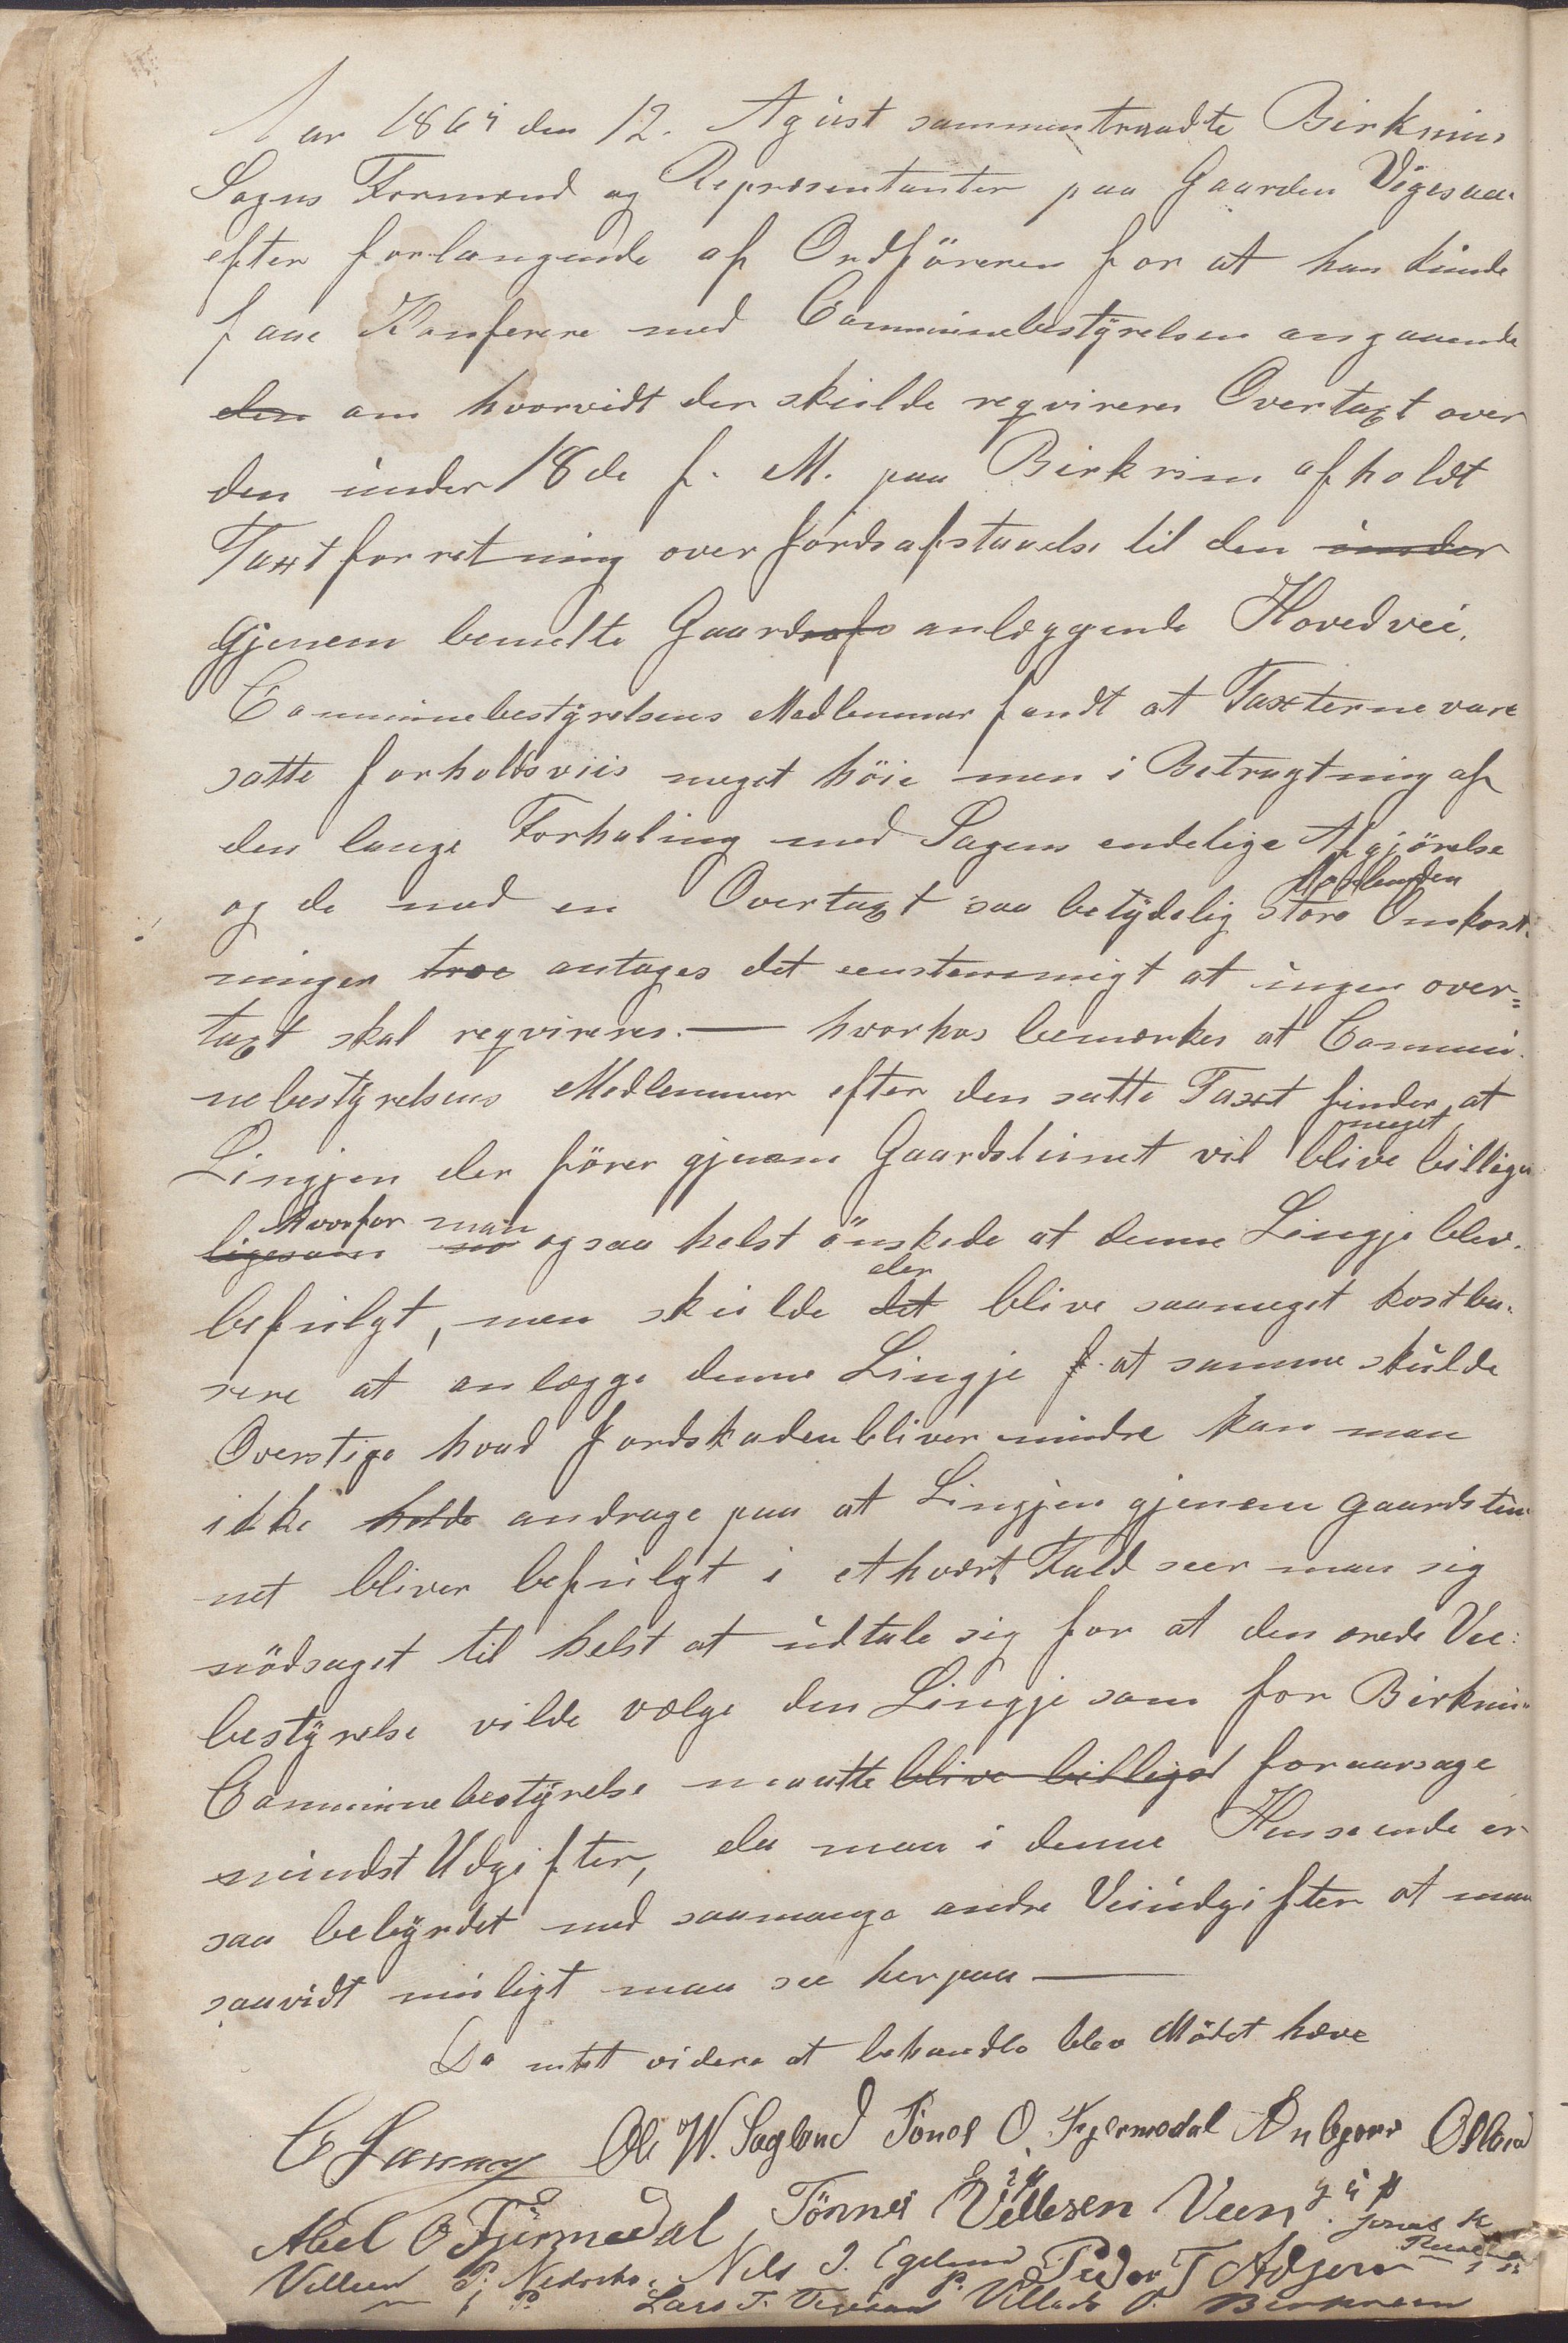 Aar 1869 den 12. Agust sammentraadte Birkrims
Sogns Formænd og Repræsentanter paa Gaarden Vigesaa
efter forlangende af Ordföreren for at han kunde
faae Konferere med Communebestyrelsen angaaende
den om hvorvidt der skulde reqvireres Overtaxt over
den under 18de f. M. paa Birkrim afholdt
Taxtforretning over Jordsafstaaelse til den under
Gjenem bemelte Gaardsafs anlæggende Hovedvei.
Communebestyrelsens Medlemmer fandt at Taxterne vare
satte forholdsviis meget höie men i Betragtning af
den lange Forhaling med Sagens endelige Afgjörelse
og de med en Overtaxt saa betydelig store Omkost-
ninger troe antages det eenstemmigt at ingen over=
taxt skal reqvireres. — hvorhos bemærkes at Commu-
nebestyrelsens Medlemmer efter den satte Taxt finder at
Lingjen der förer gjenem Gaardstunet vil meget blive billiger
ligesom hvorfor man ogsaa helst önskede at denne Lingje blev
befulgt, men skulde det der blive saameget kostba-
rere at anlægge denne Lingje f at samme skulde
Overstige hvad Jordskaden bliver mindre kan man
ikke holde andrage paa at Lingjen gjenem gaardstu-
net bliver befulgt i ethvert Fald seer man sig
nödsaget til helst at udtale sig for at den ærede Vee-
bestyrelse vilde vælge den Lingje som for Birkrim
Communebestyrelse maatte blive billigst foraarsage
mindst Udgifter, da man i denne Henseende er
saa bebyrdet med saamange andre Veiudgifter at man
saavidt muligt maa see herpaa —
Da intet videre at behandle blev Mödet hæve
Ole W. Sagland Tönes O. Fjermedal Anbjørn Osland
Abel O Fjermedal Tönnes Villesen Veen
P. Nedrebø Nils J. Egeland Peder T Adsen
Lars T. Vigesaa Villads P. Berkreim